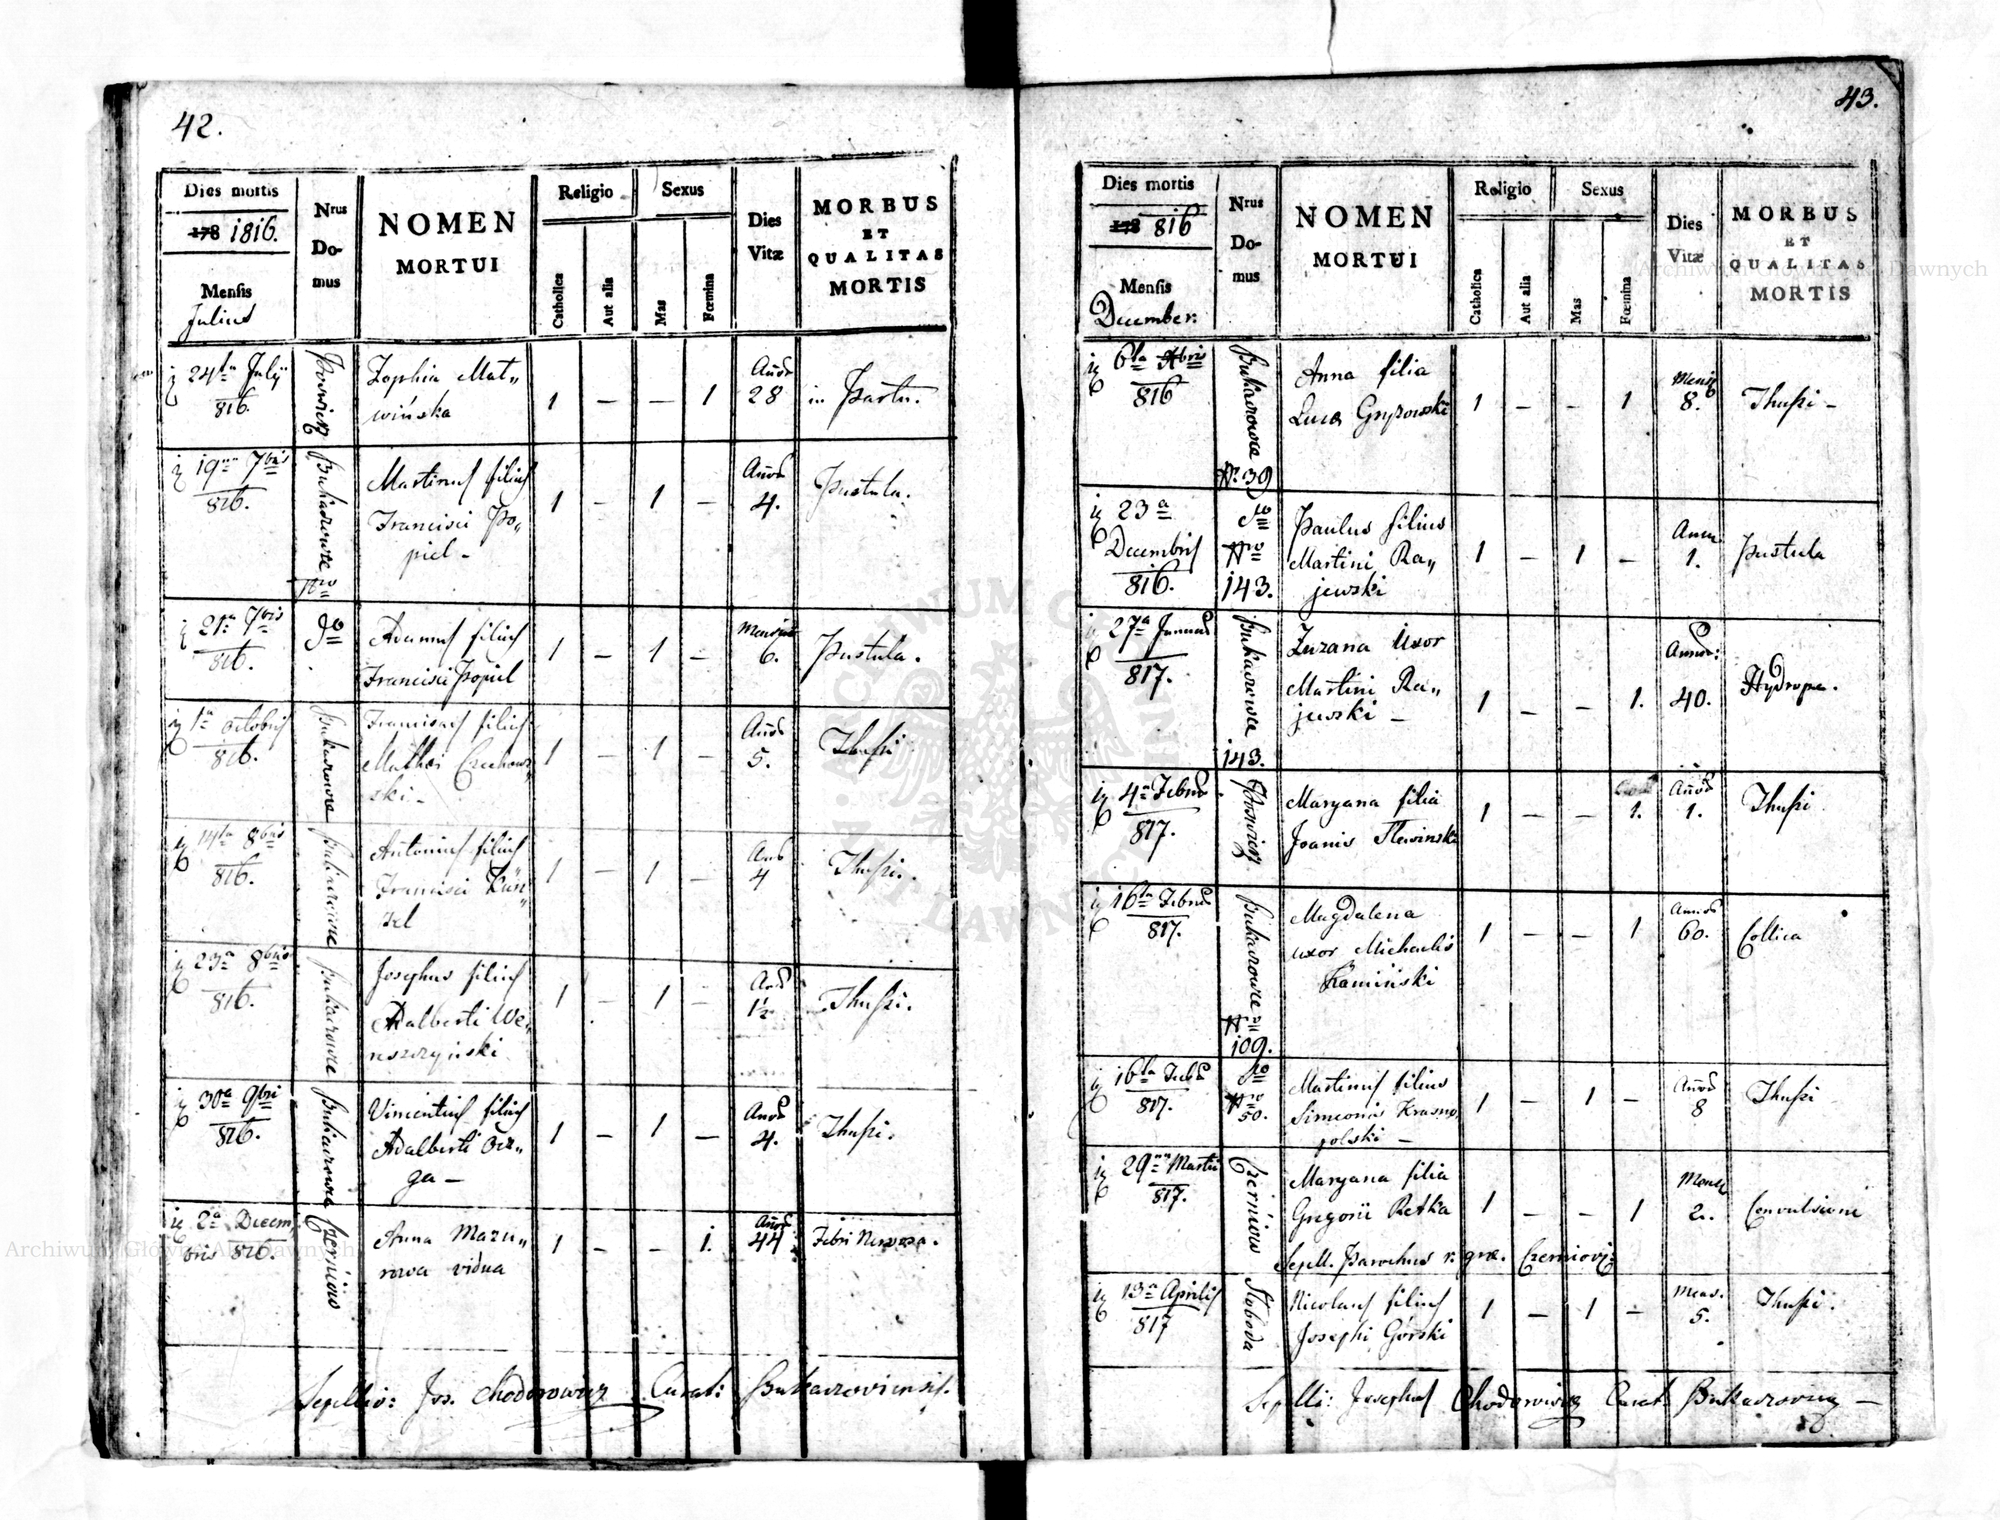 42.
Dies mortis
178 1816.
Mensis
Julius
Nrus
Do-
mus
NOMEN
MORTUI
Religio
Catholica
Aut alia
Sexus
Mas
Fœmina
Dies
Vitæ
MORBUS
ET
QUALITAS
MORTIS
24ta July
816.
Zophia Mat„
wińska
1 — — 1
Annor
28
in Partu.
19na 7bris
816.
Bukaczowce
Nro
Martinus filius
Francisci Po„
piel —
1 — 1 —
Annor
4.
Pustula.
21a 7bris
816.
do
Adamus filius
Francisci Popiel
1 — 1 —
Mensium
6.
Pustula.
1a Octobris
816.
Bukaczowce
Franciscus filius
Mathei Czechow„
ski —
1 — 1 —
Annor
5.
Thussi
14ta 8bris
816.
Bukaczowce
Antonius filius
Francisci Kün„
zel
1 — 1 —
Ann
4
Thussi.
23a 8bris
816.
Bukaczowce
Josephus filius
Adalberti We„
1 — 1 —
Ann
1½
Thussi.
30a 9bris
816.
Bukaczowce
Vincentius filius
Adalberti
1 — 1 —
Annor
4.
Thussi.
2a Decem
bris 816.
Czerniow
Anna Mazu„
rowa vidua
1 — — 1.
Annor
44
Febri Nervosa.
Sepelivi: Jos. Chodorowicz Curat: Bukaczoviensis.
43.
Dies mortis
178 816
Mensis
December.
Nrus
Do-
mus
NOMEN
MORTUI
Religio
Catholica
Aut alia
Sexus
Mas
Fœmina
Dies
Vitæ
MORBUS
ET
QUALITAS
MORTIS
6ta Xbris
816
Bukaczowce
Nr. 39
Anna filia
Luca Gryzowski
1 — — 1
Mens
8.
Thussi —
23a
Decembris
816.
do
Nro
143.
Paulus filius
Martini Ra„
jewski
1 — 1 —
Annu
1.
Pustula
27a Januar
817.
Bukaczowce
143.
Zuzana Uxor
Martini Ra„
jewski —
1 — — 1.
Annor:
40.
Hydrope.
4a Febru
817.
Maryana filia
Joanis Slewinski
1 — — 1.
Annor
1.
Thussi
16ta Febru
817.
Bukaczowce
Nro
109.
Magdalena
uxor Michaelis
Kamiński
1 — — 1
Annor
60.
Collica
16ta Febr
817.
do
Nro
50.
Martinus filius
Simeonis Krasno„
polski —
1 — 1 —
Annor
8
Thussi
29na Martii
817.
Czerniow
Maryana filia
Gregorii Retka
1 — — 1
Mens
2.
Convulsione
Sepell. Parochus r. gr. Czerniov:
13a Aprilis
817
Sloboda
Nicolaus filius
Josephi Górski
1 — 1 —
Mens.
5.
Thussi.
Sepelli: Josephus Chodorowicz Curat Bukaczovien —
Archiwum Główne Akt Dawnych
Archiwum Główne Akt Dawnych
ARCHIWUM GŁÓWNE AKT DAWNYCH